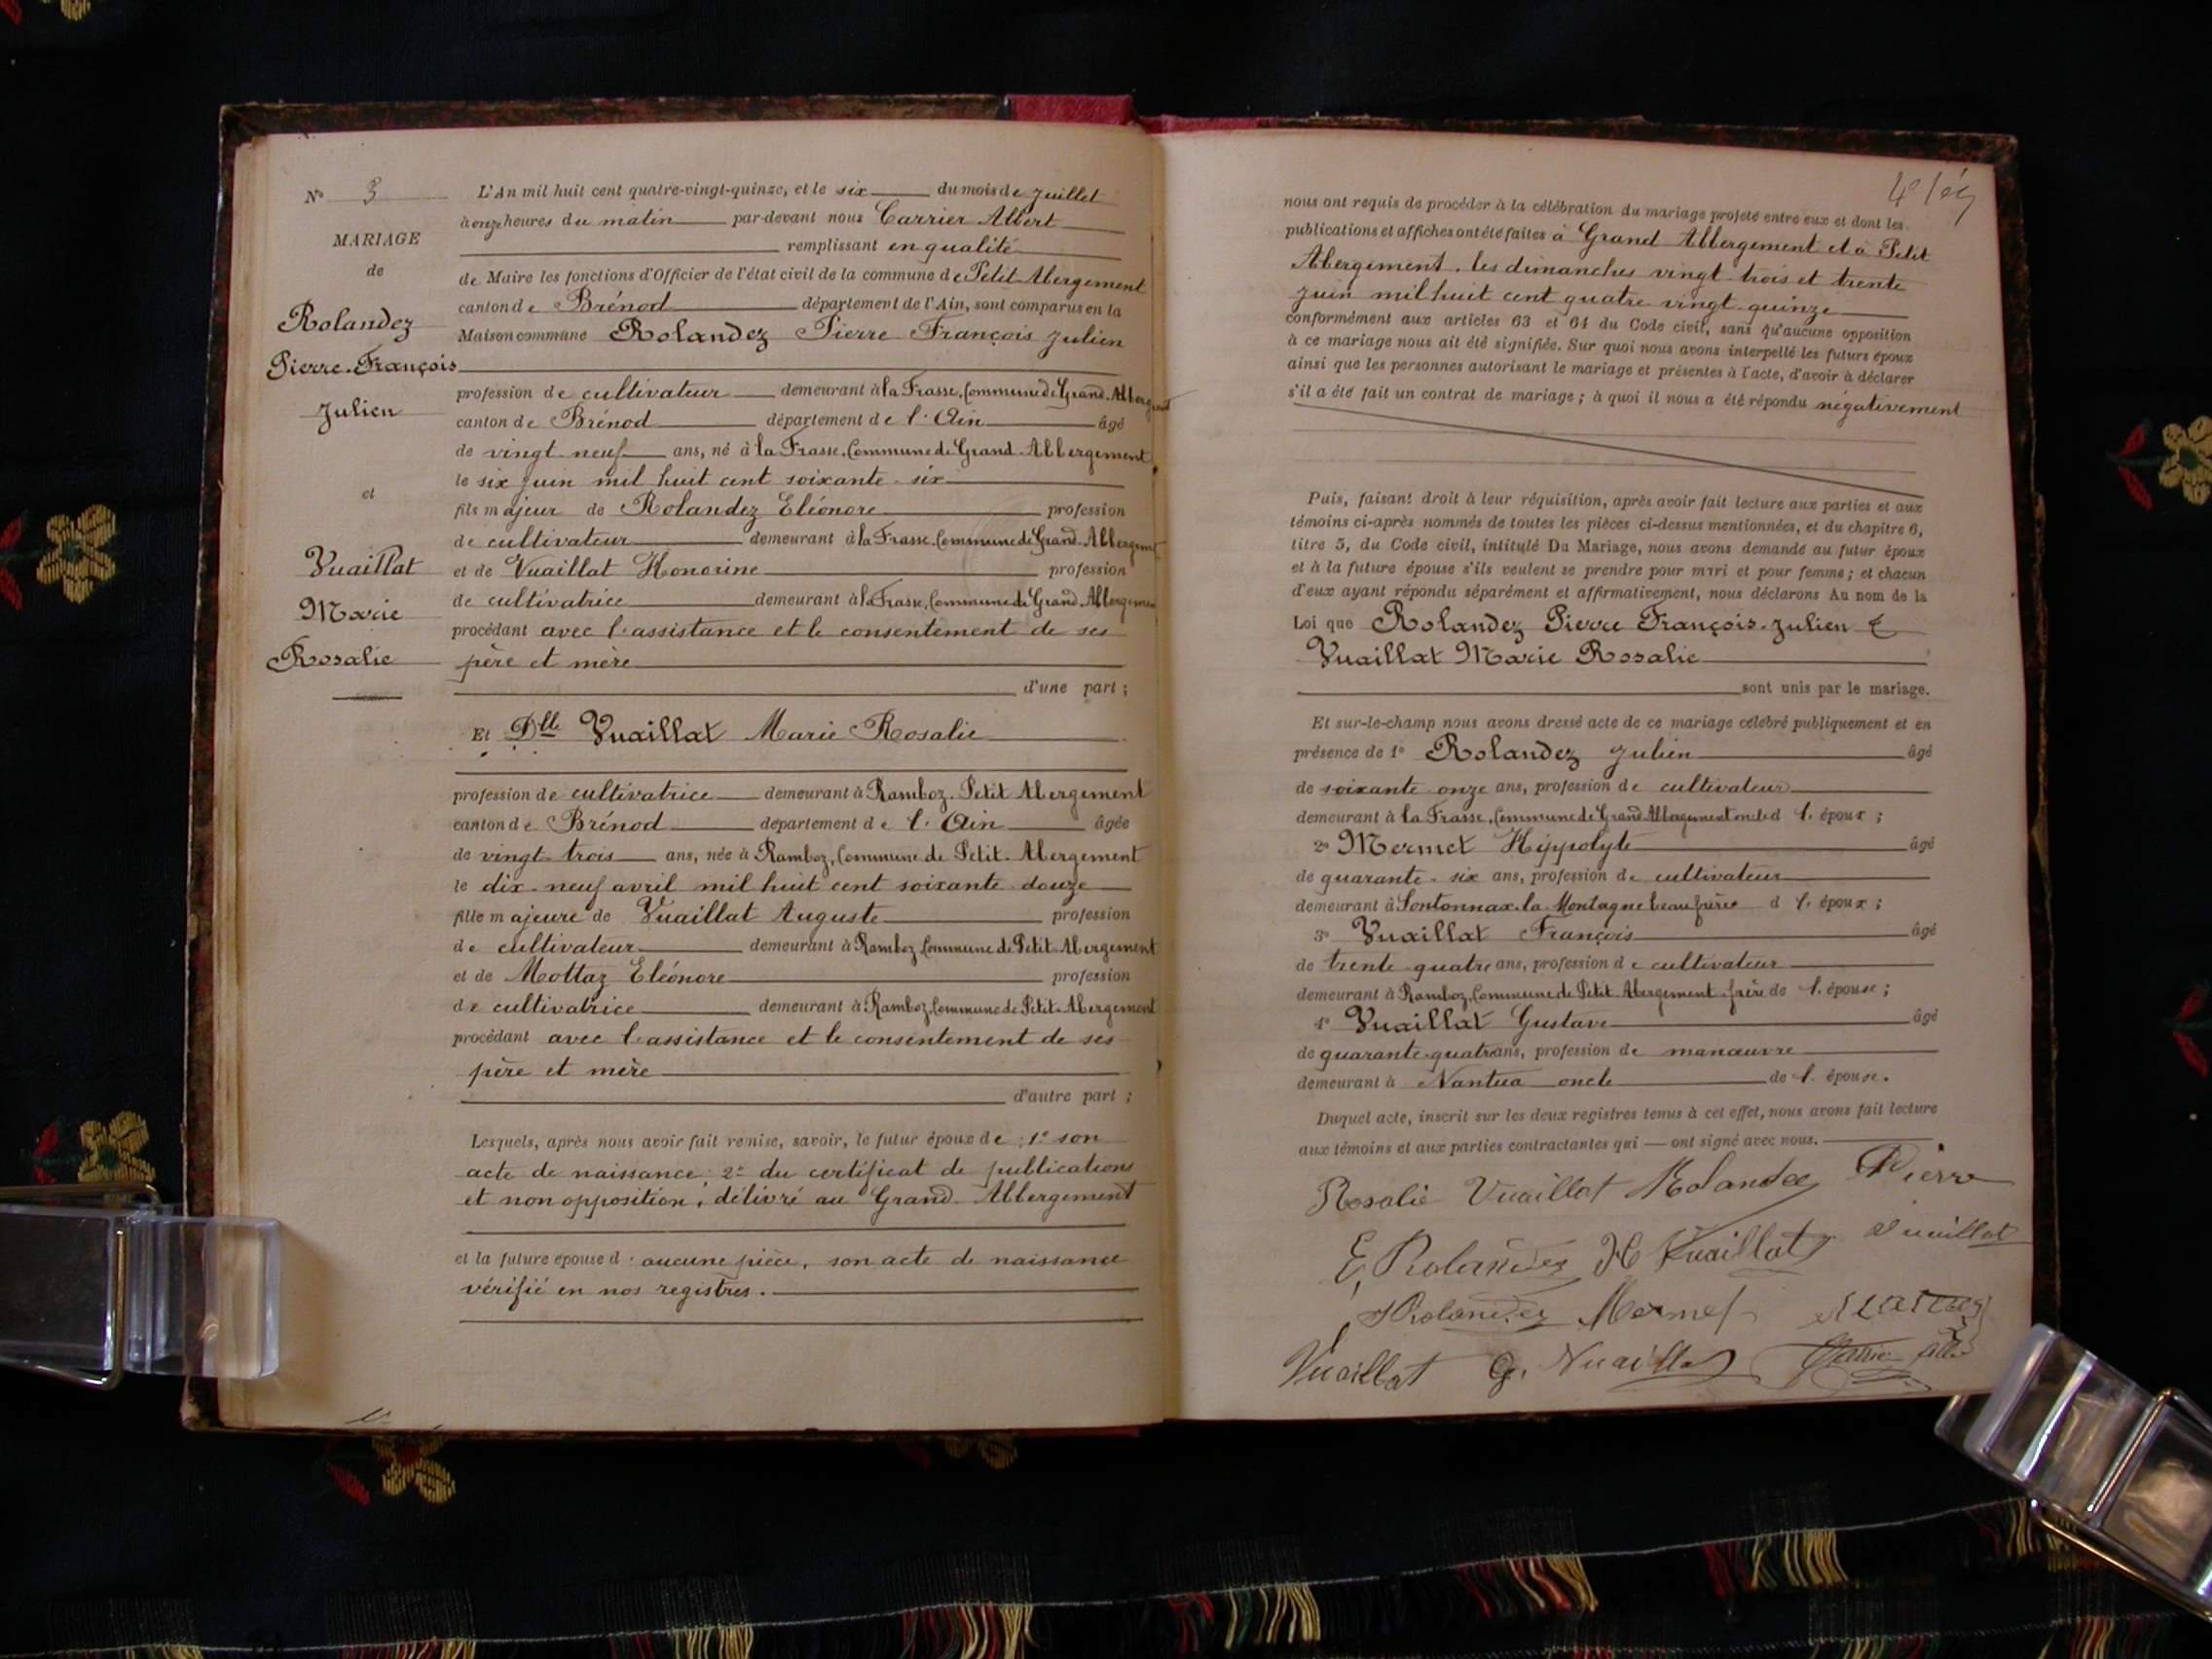 N° 3
MARIAGE
de
Rolandez
Pierre-François
Julien
et
Vuaillat
Marie
Rosalie
L'An mil huit cent quatre-vingt-quinze, et le six du mois de Juillet
à onze heures du matin par-devant nous Carrier Albert
remplissant en qualité
de Maire les fonctions d'Officier de l'état civil de la commune de Petit-Abergement
canton de Brénod département de l'Ain, sont comparus en la
Maison commune Rolandez Pierre François Julien
profession de cultivateur demeurant à la Frasse, Commune de Grand-Abbergement
canton de Brénod département de l'Ain âgé
de vingt-neuf ans, né à la Frasse, Commune de Grand-Abbergement
le six juin mil huit cent soixante-six
fils majeur de Rolandez Eléonore profession
de cultivateur demeurant à la Frasse, Commune de Grand-Abbergement
et de Vuaillat Honorine profession
de cultivatrice demeurant à la Frasse, Commune de Grand-Abbergement
procédant avec l'assistance et le consentement de ses
père et mère
d'une part ;
Et Dlle Vuaillat Marie Rosalie
profession de cultivatrice demeurant à Ramboz. Petit Abergement
canton de Brénod département de l'Ain âgée
de vingt-trois ans, née à Ramboz, Commune de Petit-Abergement
le dix-neuf avril mil huit cent soixante-douze
fille majeure de Vuaillat Auguste profession
de cultivateur demeurant à Ramboz Commune de Petit-Abergement
et de Mottaz Eléonore profession
de cultivatrice demeurant à Ramboz, Commune de Petit-Abergement
procédant avec l'assistance et le consentement de ses
père et mère
d'autre part ;
Lesquels, après nous avoir fait remise, savoir, le futur époux de : 1° son
acte de naissance : 2° du certificat de publications
et non opposition, délivré au Grand-Abbergement
et la future épouse d' aucune pièce, son acte de naissance
vérifié en nos registres.
nous ont requis de procéder à la célébration du mariage projeté entre eux et dont les
publications et affiches ont été faites à Grand Abbergement et à Petit
Abergement, les dimanches vingt-trois et trente
Juin mil huit cent quatre-vingt-quinze
conformément aux articles 63 et 64 du Code civil, sans qu'aucune opposition
à ce mariage nous ait été signifiée. Sur quoi nous avons interpellé les futurs époux
ainsi que les personnes autorisant le mariage et présentes à l'acte, d'avoir à déclarer
s'il a été fait un contrat de mariage ; à quoi il nous a été répondu négativement
Puis, faisant droit à leur réquisition, après avoir fait lecture aux parties et aux
témoins ci-après nommés de toutes les pièces ci-dessus mentionnées, et du chapitre 6,
titre 5, du Code civil, intitulé Du Mariage, nous avons demandé au futur époux
et à la future épouse s'ils veulent se prendre pour mari et pour femme ; et chacun
d'eux ayant répondu séparément et affirmativement, nous déclarons Au nom de la
Loi que Rolandez Pierre François-Julien &
Vuaillat Marie Rosalie
sont unis par le mariage.
Et sur-le-champ nous avons dressé acte de ce mariage célébré publiquement et en
présence de 1° Rolandez Julien âgé
de soixante onze ans, profession de cultivateur
demeurant à la Frasse, Commune de Grand Abbergement oncle d l' époux ;
2° Mermet Hippolyte âgé
de quarante-six ans, profession de cultivateur
demeurant à Sontonnax-la-Montagne beau frère d l' époux ;
3° Vuaillat François âgé
de trente-quatre ans, profession de cultivateur
demeurant à Ramboz, Commune de Petit-Abergement frère de l' épouse ;
4° Vuaillat Gustave âgé
de quarante-quatre ans, profession de manœuvre
demeurant à Nantua oncle de l' épouse.
Duquel acte, inscrit sur les deux registres tenus à cet effet, nous avons fait lecture
aux témoins et aux parties contractantes qui ont signé avec nous.
Rosalie Vuaillat Rolandez Pierre
E, Rolandez H Vuaillat Vuaillat
J Rolandez Mermet
Vuaillat G. Vuaillat